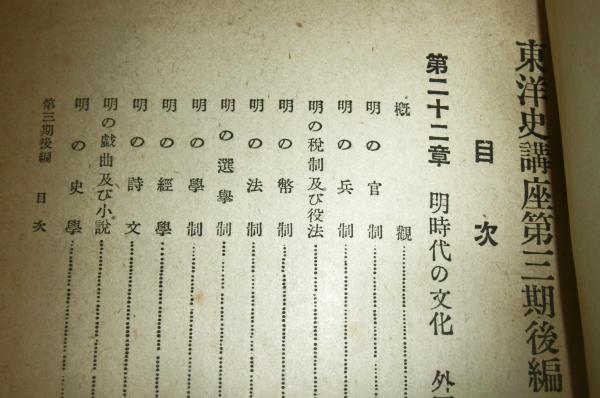 東洋史講座第三期後編
目次
第二十二章 明時代の文化 外
概觀
明の官制
明の兵制
明の稅制及び役法
明の幣制
明の法制
明の選擧制
明の學制
明の經學
明の詩文
明の戲曲及び小說
明の史學
第三期後編 目次